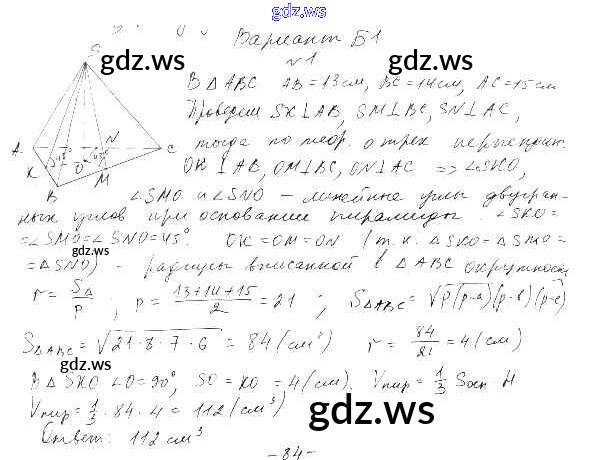 gdz.ws
Вариант Б1
gdz.ws gdz.ws
№1
S
В ΔABC AB = 13 см, BC = 14 см, AC = 15 см
Проведем SK⊥AB, SM⊥BC, SN⊥AC,
A K B M N C O 45° 45°
тогда по теор. о трех перпендик.
OK⊥AB, OM⊥BC, ON⊥AC => ∠SKO,
∠SMO и ∠SNO – линейные углы двугран-
ных углов при основании пирамиды. ∠SKO =
= ∠SMO = ∠SNO = 45°. OK = OM = ON (т.к. ΔSKO = ΔSMO =
gdz.ws gdz.ws
= ΔSNO) – радиусы вписанной в ΔABC окружности
r = S△/p ; p = (13+14+15)/2 = 21 ; S△ABC = √p(p-a)(p-b)(p-c)
S△ABC = √21·8·7·6 = 84 (см²) r = 84/21 = 4 (см)
gdz.ws gdz.ws
В ΔSKO ∠O = 90°, SO = KO = 4 (см). Vпир = 1/3 Sосн·H
Vпир = 1/3 · 84 · 4 = 112 (см³)
gdz.ws
Ответ: 112 см³
– 84 –
gdz.ws